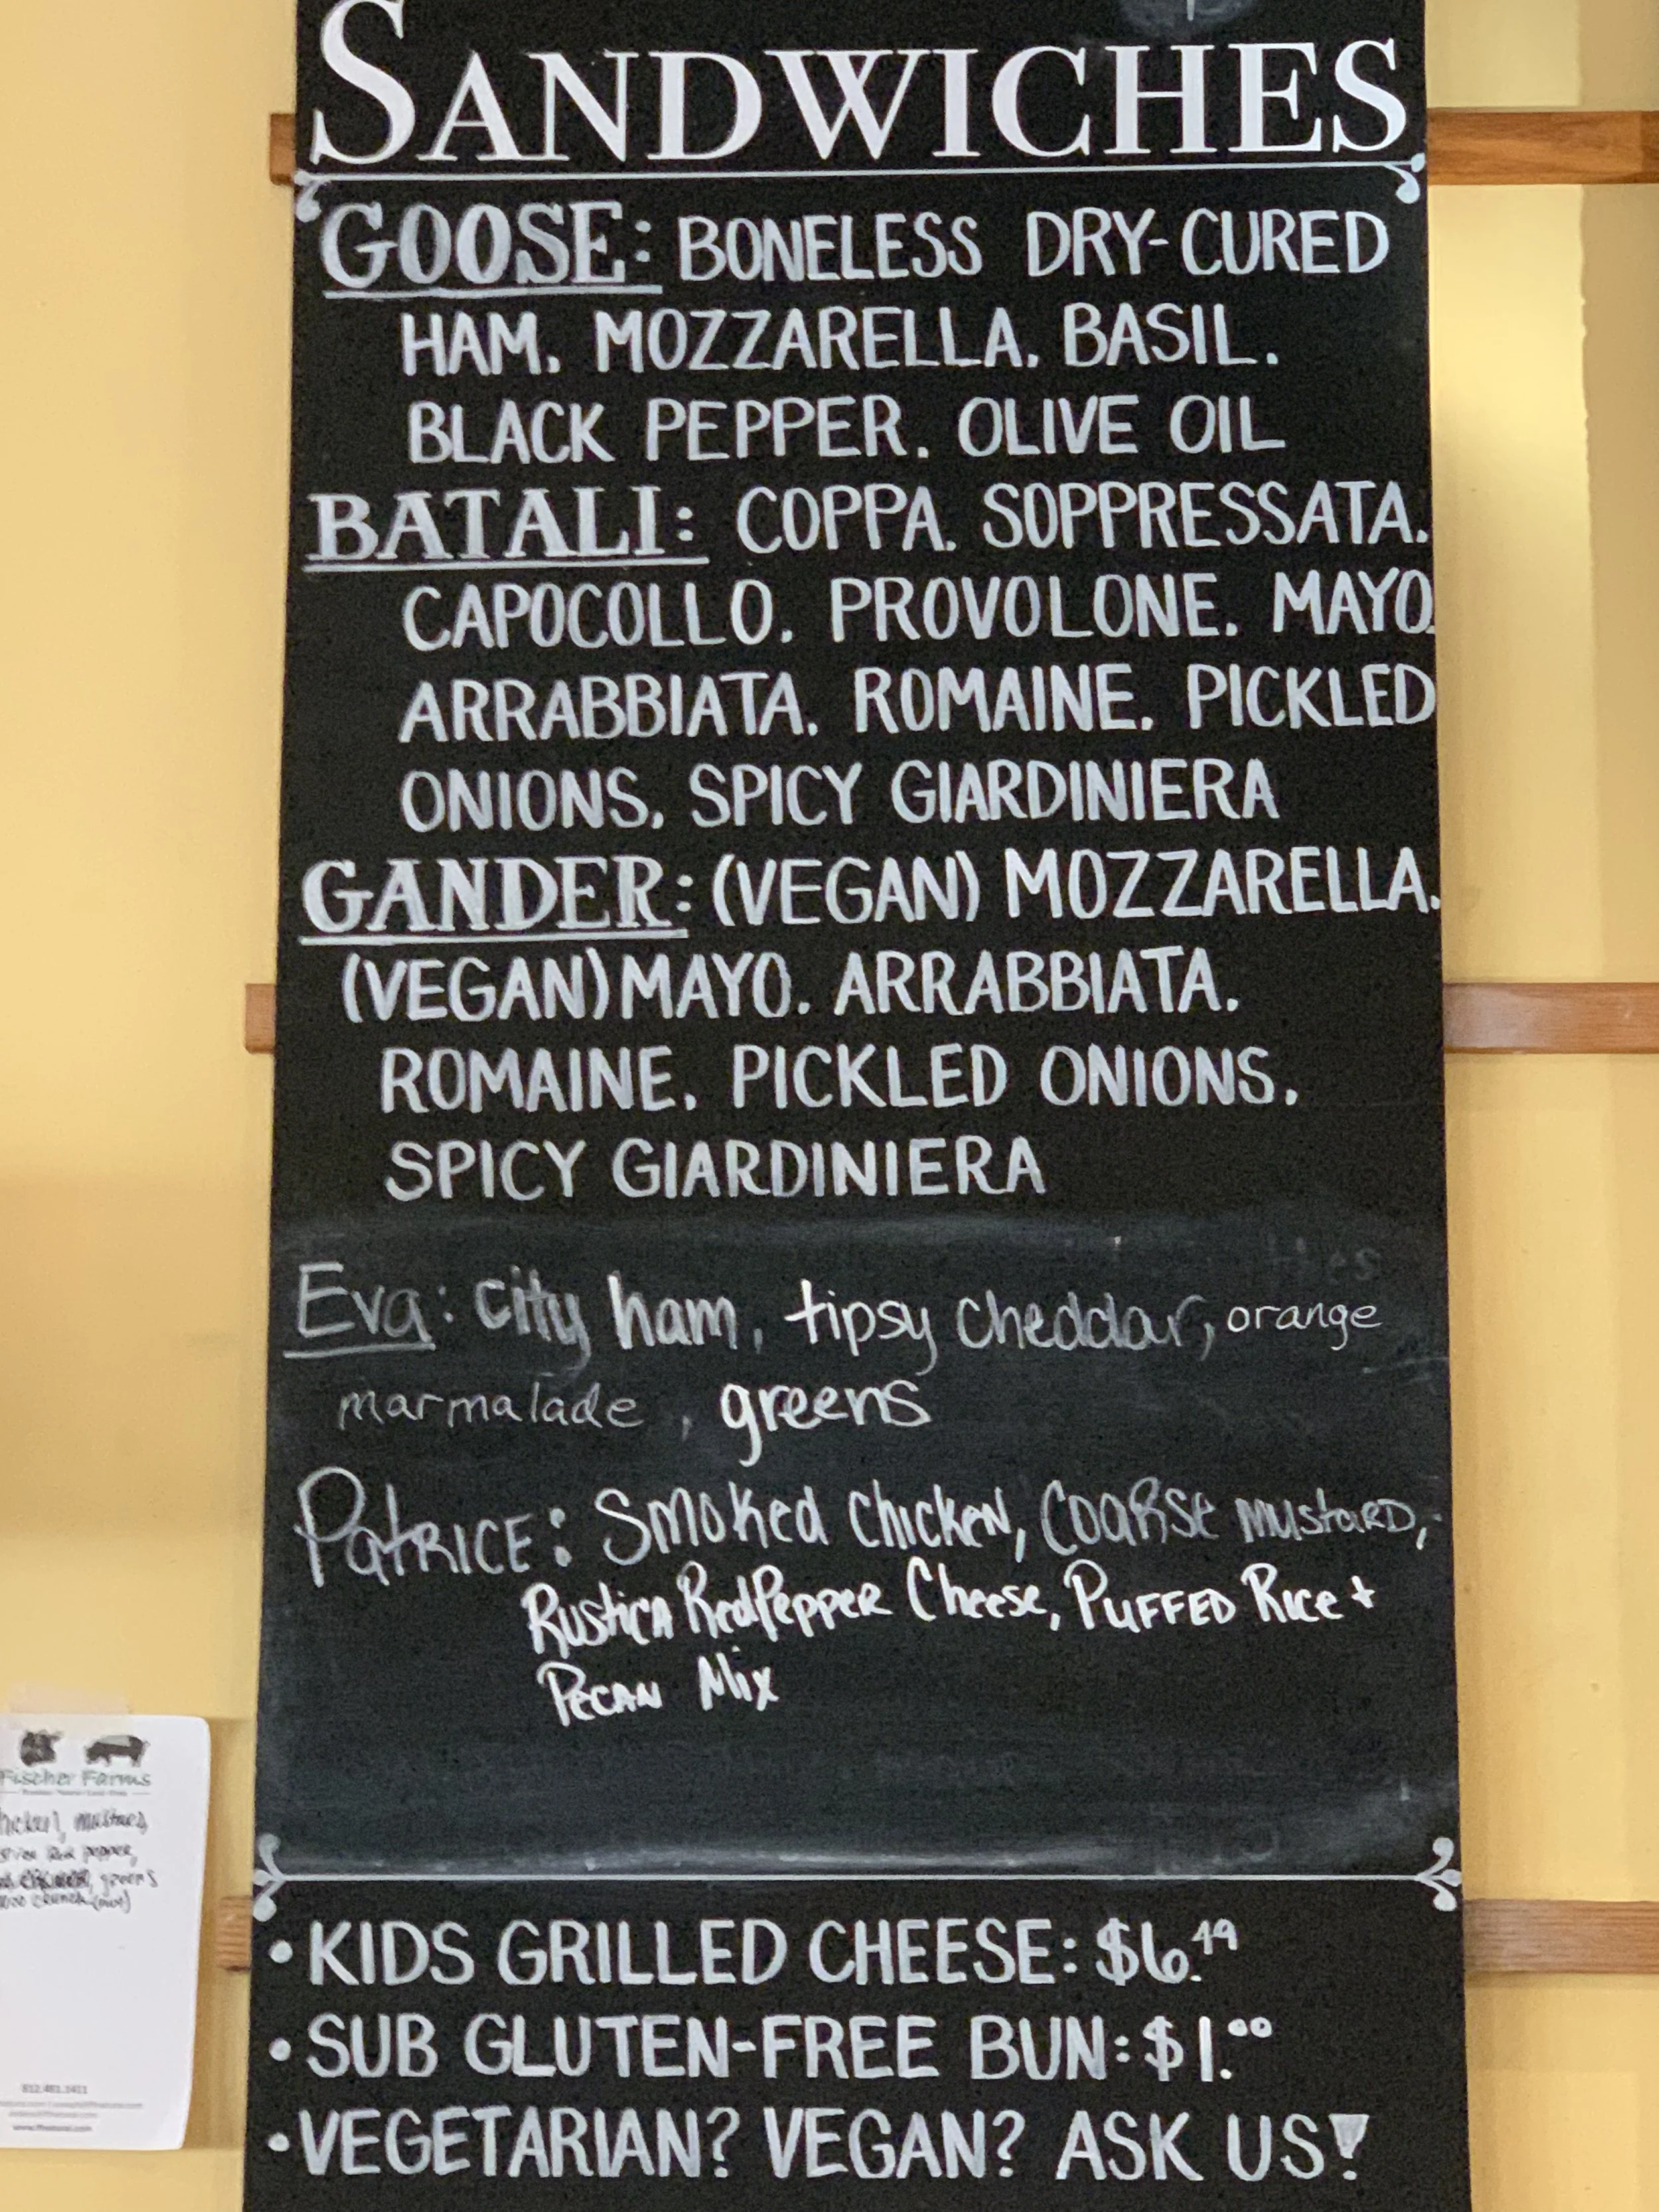 SANDWICHES
GOOSE: BONELESS DRY-CURED
HAM. MOZZARELLA. BASIL.
BLACK PEPPER. OLIVE OIL
BATALI: COPPA. SOPPRESSATA.
CAPOCOLLO. PROVOLONE. MAYO.
ARRABBIATA. ROMAINE. PICKLED
ONIONS. SPICY GIARDINIERA
GANDER: (VEGAN) MOZZARELLA.
(VEGAN) MAYO. ARRABBIATA.
ROMAINE. PICKLED ONIONS.
SPICY GIARDINIERA
Eva: city ham, tipsy cheddar, orange
marmalade, greens
Patrice: Smoked Chicken, Coarse Mustard,
Rustica Red Pepper Cheese, Puffed Rice +
Pecan Mix
• KIDS GRILLED CHEESE: $6.49
• SUB GLUTEN-FREE BUN: $1.00
• VEGETARIAN? VEGAN? ASK US!
Fischer Farms
mustard,
pepper,
greens
812.481.1411